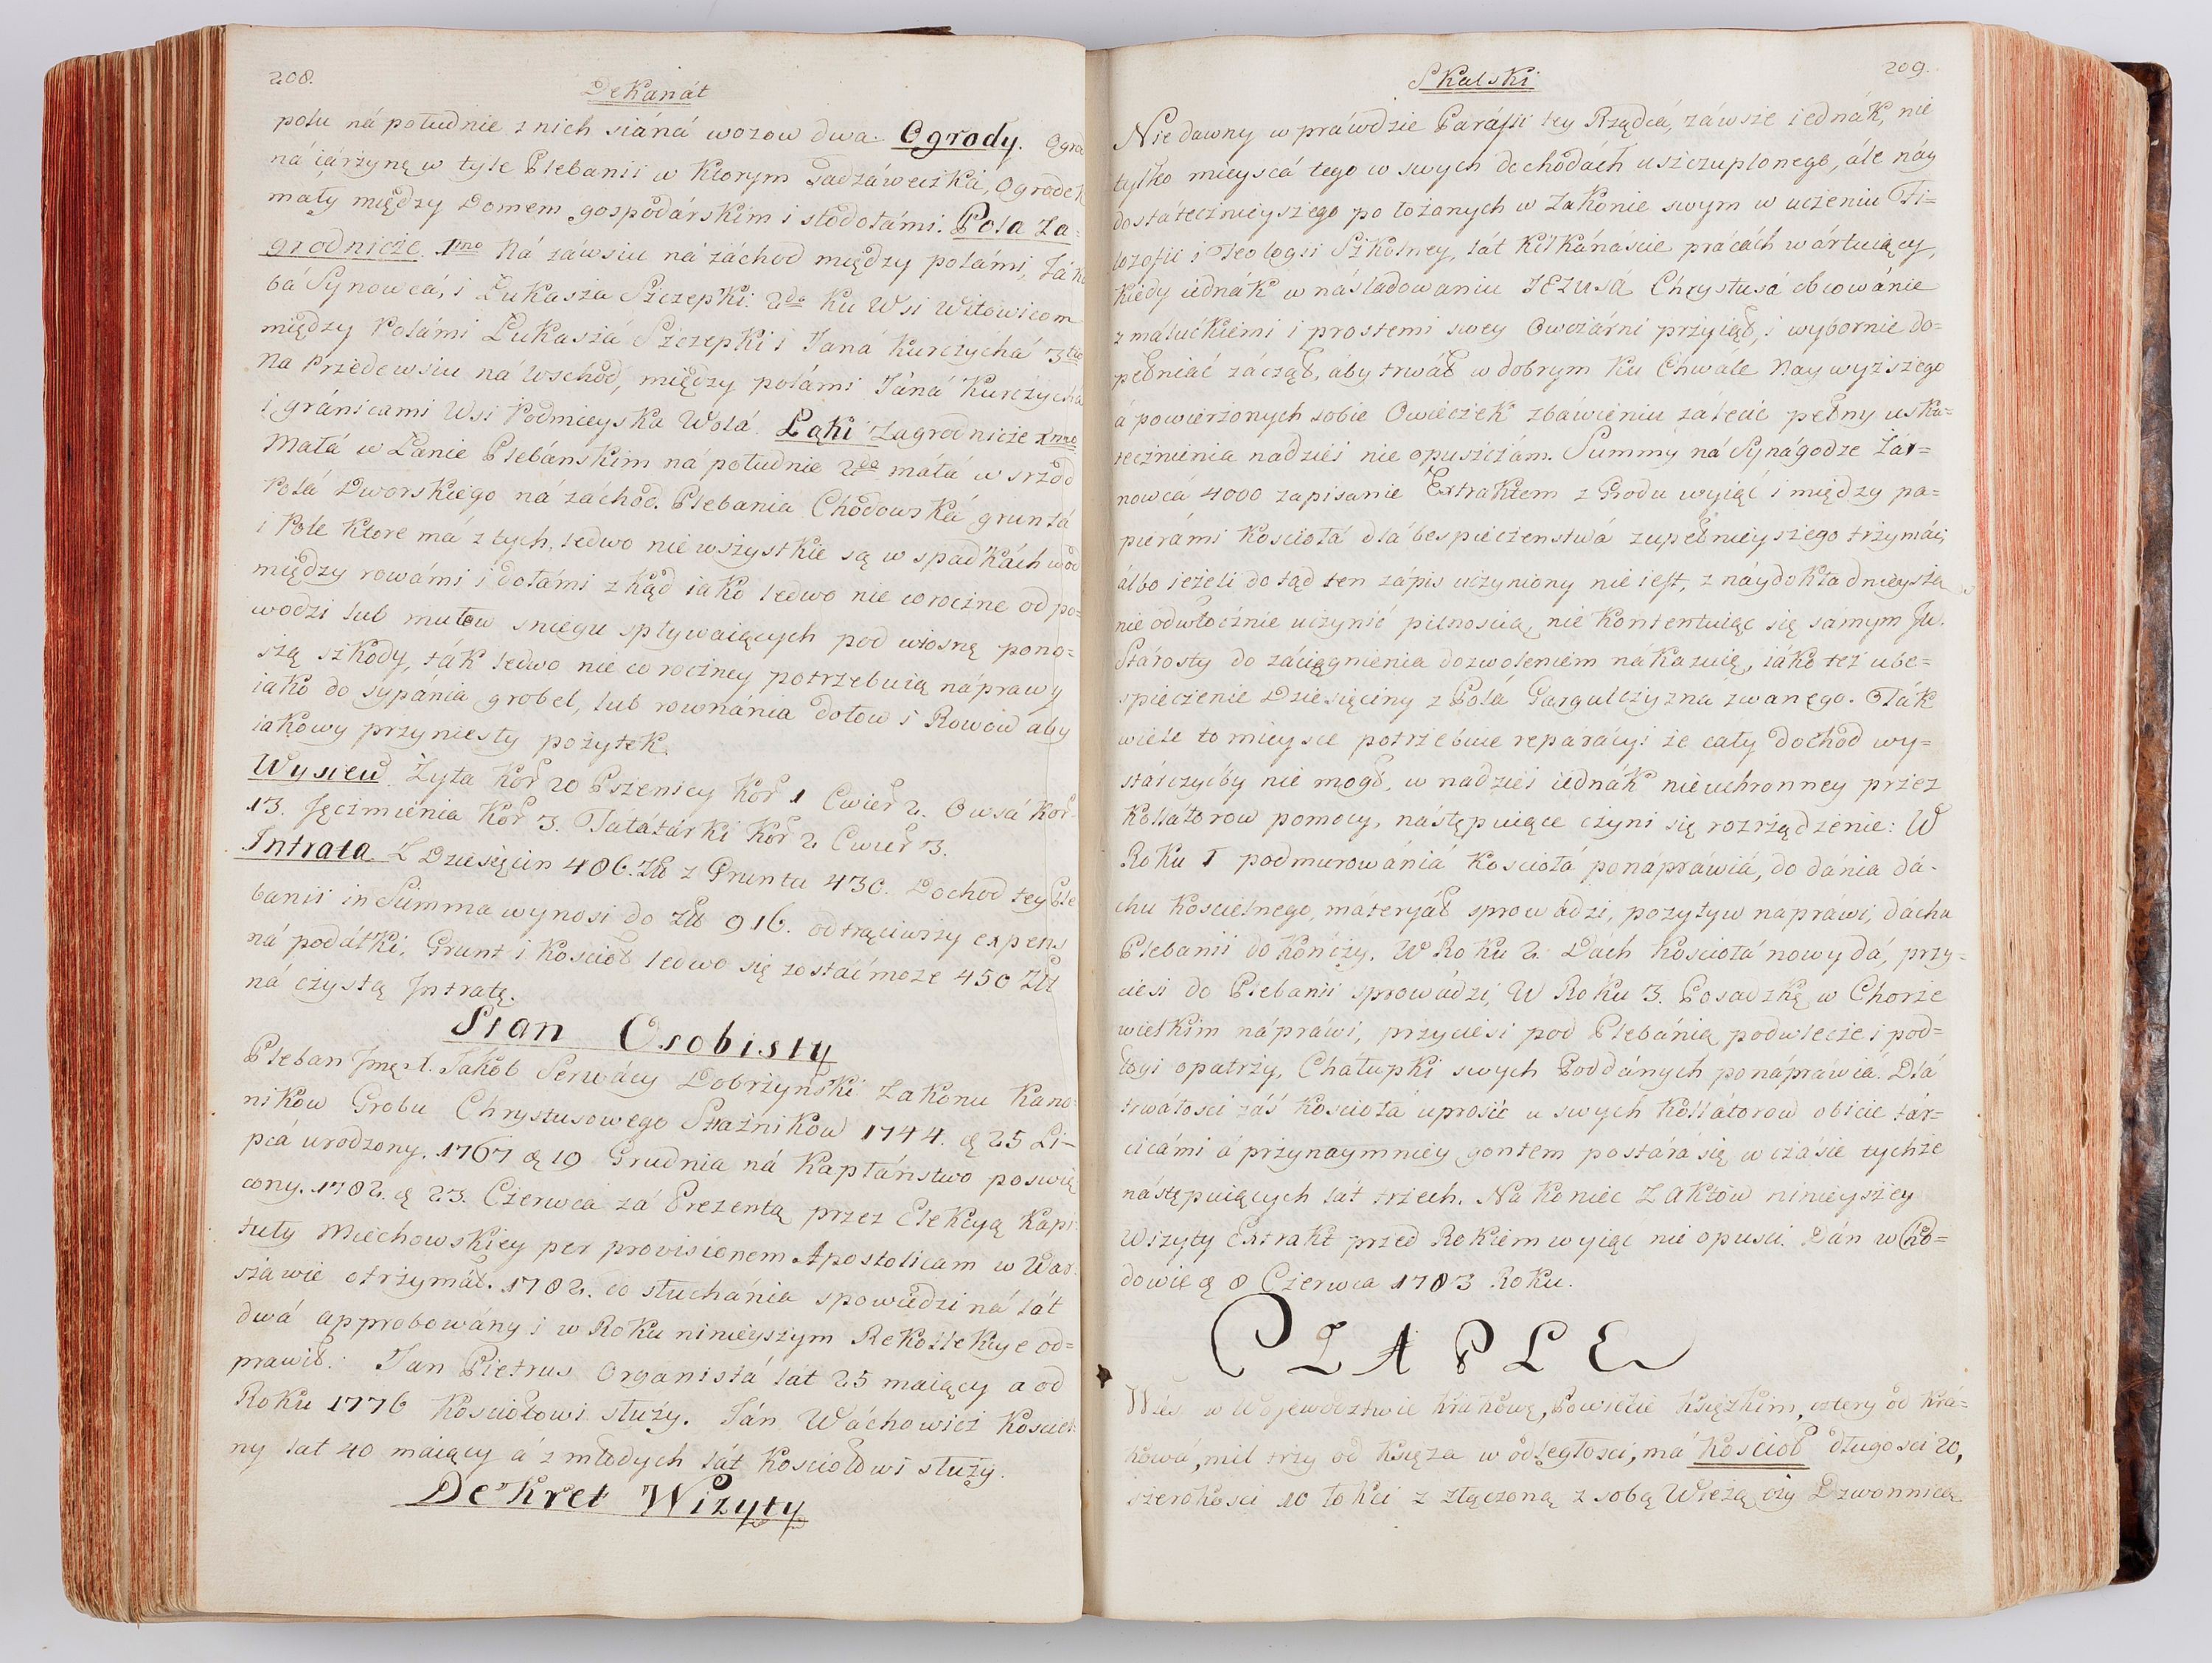 208.
Dekanát
polu ná południe z nich siáná wozow dwa. Ogrody. Ogro
ná iárzynę w tyle Plebanii w ktorym Sadzáweczka, Ogrodek
mały między Domem gospodárskim i stodołámi. Pola Za=
grodnicze. 1mo Ná záwsiu ná záchod między polámi, Jáku
bá Synowcá, i Łukasza Szczepki. 2do Ku Wsi Witowicom
między Polámi Łukaszá Szczepki i Janá Kurczychá 3tio
Na Przedewsiu ná Wschod, między polámi Jáná Kurczychá
i gránicami Wsi Podmieyska Wolá. Łąki Zagrodnicze 1mo
Małá w Łanie Plebánskim ná południe 2do máła w srzod
Polá Dworskiego ná záchod. Plebania Chodowská gruntá
i Pole ktore má z tych, ledwo nie wszystkie są w spadkách wod
między rowámi i dołámi zkąd iako ledwo nie coroczne od po=
wodzi lub mułow sniegu spływaiących pod wiosnę pono=
szą szkody, ták ledwo nie coroczney potrzebuią nápráwy
iako do sypánia grobel, lub rownánia dołow i Rowow aby
iakowy przyniesły pożytek.
Wysiew Żyta Kor 20 Pszenicy Kor 1 Cwier 2. Owsá Kor
13. Jęczmienia Kor 3. Tatárki Kor 2 Cwier 3.
Intrata Z Dziesięcin 486. Zł z Grunta 430. Dochod tey Ple
banii in Summa wynosi do Zł 916. odtrąciwszy expens
ná podátki, Grunt i Kościoł ledwo się zostać może 450 Zł
ná czystą Intratę.
Stan Osobisty
Pleban Jmę X. Jakób Serwácy Dobrzyński Zakonu Kano=
nikow Grobu Chrystusowego Strażnikow 1744. d 25 Li=
pcá urodzony. 1767 d 19 Grudnia ná Kapłáństwo poswię
cony. 1782. d 23. Czerwca zá Prezentą przez Elekcyą Kapi=
tuły Miechowskiey per provisionem Apostolicam w War=
szawie otrzymáł. 1782. do słuchánia spowiedzi ná lát
dwá approbowány i w Roku ninieyszym Rekollekcye od=
prawił. Jan Pietrus Organistá lát 25 maiący a od
Roku 1776 Kościołowi służy. Ján Wáchowicz Kosciel=
ny lat 40 maiący á z młodych lát Kościołowi służy.
Dekret Wizyty
Skalski
209.
Nie dawny w práwdzie Paráfii tey Rządcá, záwsze iednák, nie
tylko mieyscá tego w swych dochodách uszczuplonego, ále náy
dostátecznieyszego położonych w Zakonie swym w uczeniu Fi=
lozofii i Teologii Szkolney, lát kilkánaście prácách wártuiący,
kiedy iednák w násladowaniu JEZUSA Chrystusá obcowánie
z máluckiemi i prostemi swey Owczárni przyiął, i wybornie do=
pełniáć záczął, áby trwáł w dobrym Ku Chwále Naywyższego
á powierzonych sobie Owieczek zbáwieniu zálecić pełny usku=
tecznienia nadziei nie opuszczám. Summy ná Synágodze Żár=
nowcá 4000 zapisanie Extraktem z Grodu wyiąć i między pa=
pierámi Kościołá dlá bespieczenstwá zupełnieyszego trzymái,
álbo ieżeli do tąd ten zápis uczyniony nie iest, z náydokładnieyszą
nie odwłocznie uczynić pilnoscią, nie kontentuiąc się sámym Jw.
Stárosty do záciągnienia dozwoleniem nákázuię, iáko też ube=
spieczenie Dziesięciny z Polá Gargulczyzna zwanego. Ták
wiele to mieysce potrzebuie reparácyi że cały dochod wy=
stárczyćby nie mogł, w nadziei iednák nieuchronney przez
Kollatorow pomocy, nástępuiące czyni się rozrządzenie: W
Roku 1 podmurowániá Kościołá ponápráwiá, do dánia dá=
chu Koscielnego, máteryáł sprowádzi, pozytyw nápráwi, dáchu
Plebanii dokończy. W Roku 2. Dách Kościołá nowy dá, przy=
ciesi do Plebanii sprowádzi, W Roku 3. Posadzkę w Chorze
wielkim nápráwi, przyciesi pod Plebánią podwlecze i pod=
łogi opatrzy, Chałupki swych Poddánych ponápráwiá. Dlá
trwałosci záś Kościołá uprosić u swych Kollátorow obicie tár=
cicámi á przynaymniey gontem postára się w czásie tychże
nástępuiących lát trzech. Na koniec Z Aktow ninieyszey
Wizyty Extrakt przed Rokiem wyiąć nie opusci. Dán w Cho=
dowie d 8 Czerwca 1783 Roku.
CZAPLE
Wieś w Wojewodztwie Krakows, Powiecie Księzkim, cztery od Krá=
kowá, mil trzy od Księża w odległości, má Kościoł długosci 20,
szerokosci 10 łokci z złączoną z sobą Wieżą czy Dzwonnicą